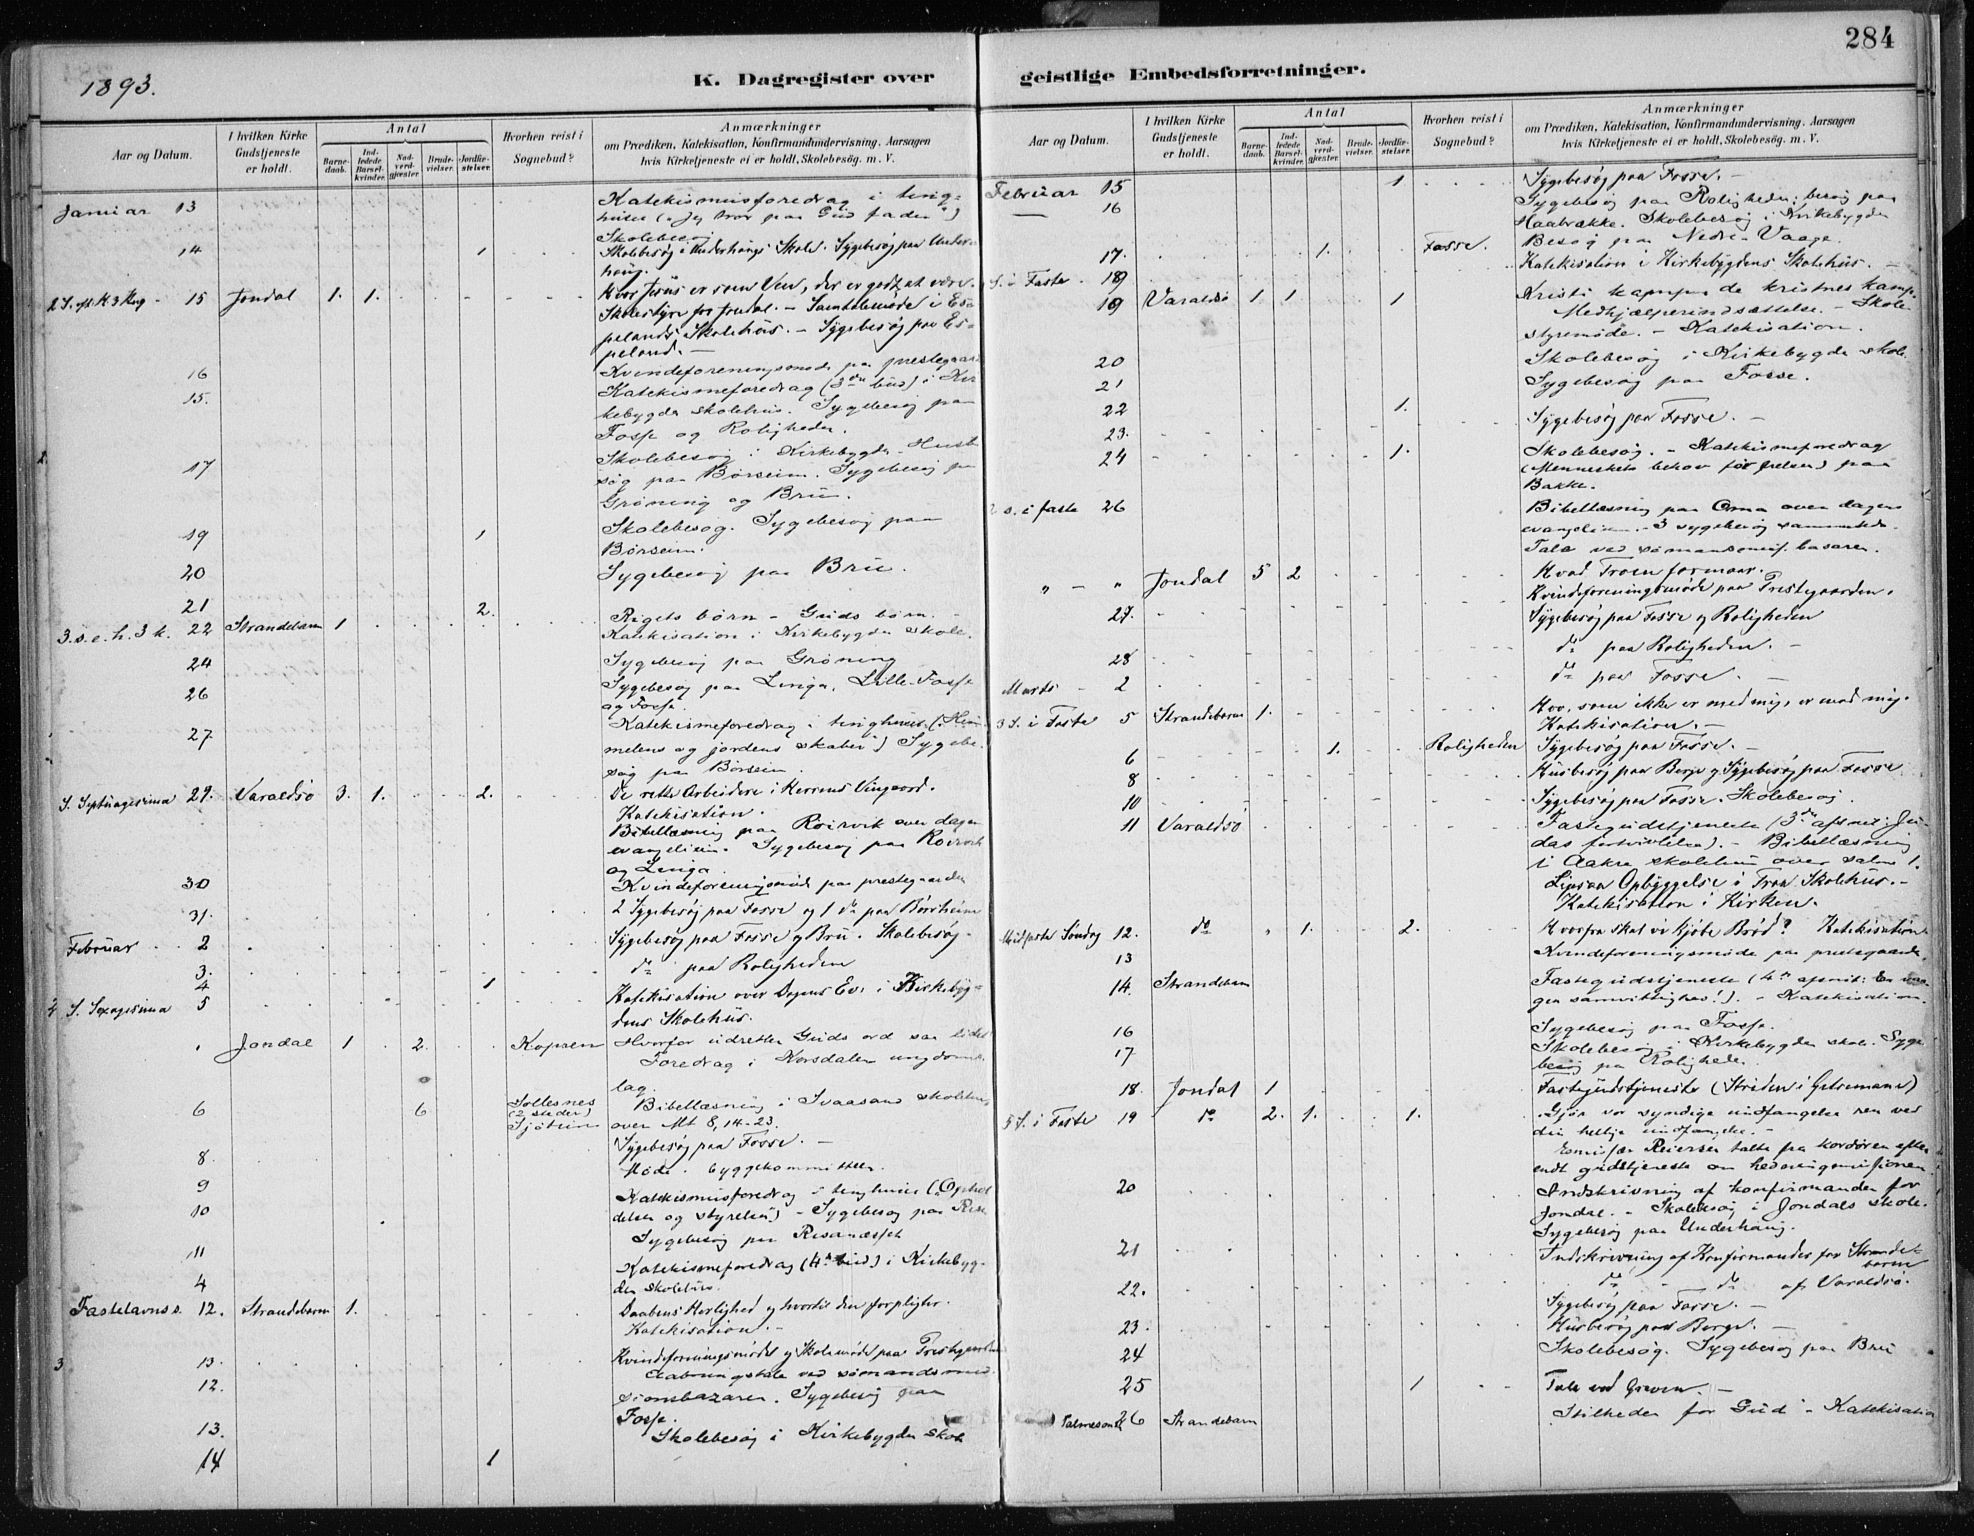 284
1893.
K. Dagregister over geistlige Embedsforretninger.
Aar og Datum.
I hvilken Kirke Gudstjeneste er holdt.
Antal
Barnedaab.
Indledede Barselkvinder.
Nadverdgjæster.
Brudevielser.
Jordfæstelser.
Hvorhen reist i Sognebud?
Anmærkninger
om Prædiken, Katekisation, Konfirmandundervisning. Aarsagen
hvis Kirketjeneste ei er holdt, Skolebesøg. m. V.
Januar 13 Katekismusforedrag i ting-
huset („Jeg tror paa Gud fader“)
Skolebesøg
14 1 Skolebesøg i Underhaugs Skole. Sygebesøg paa Under-
haug.
2 S. eft. H. 3 Kng - 15 Jondal 1. 1. Hvor Jesus er som Ven, der er godt at være.
Skolestyre for Jondal. - Samtalemøde i Es-
pelands Skolehus. - Sygebesøg paa Es-
peland. -
16 Kvindeforeningsmøde paa prestegaar
15. Katekismeforedrag (3die bud) i Kir
kebygdens skolehus. Sygebesøg paa
Fosse og Roligheden.
17 Skolebesøg i Kirkebygden. Husbe
søg paa Børseim. Sygebesøg paa
Grøning og Bru.
19 1 Skolebesøg. Sygebesøg paa
Børseim.
20 Sygebesøg paa Bru.
21 2.
3. s. e. h. 3 k. 22 Strandebarm 1 Rigets børn - Guds børn. -
Katekisation i Kirkebygdens skole.
24 Sygebesøg paa Grøning
26 Sygebesøg paa Linga, Lille-Fosse
og Fosse.
27 Katekismeforedrag i tinghuset („Him
melens og jordens skaber“) Sygebe
søg paa Børseim.
S. Septuagesima 29. Varaldsø 3. 1. 2. De rette Arbeidere i Herrens Vingaard.
Katekisation.
Bibellæsning paa Røirvik over dagens
evangelium. Sygebesøg paa Røirvik
og Linga.
30 Kvindeforeningsmøde paa prestegaarden
31. 2 Sygebesøg paa Fosse og 1 do paa Børsheim
Februar 2 Sygebesøg paa Fosse og Bru. Skolebesøg.
3. do paa Roligheden
4 1
S. Sexagesima 5 Katekisation over Dagens Ev. i Kirkebyg-
dens Skolehus.
Jondal 1 2. Kopsen Hvorfor udretter Guds ord saa lidet
Foredrag i Korsdalens ungdoms
lag.
6 6 Solesnes (2 steder) Sjøtun Bibellæsning i Svaasand skolehus
over Mt 8, 14-23.
8. Sygebesøg paa Fosse. -
9 Møde. byggekommitteen.
10 Katekismusforedrag i tinghuset („Ophol
delsen og styrelsen“) - Sygebesøg paa
11 Sygebesøg paa Risanæsset
4 Katekismeforedrag (4de bud) i Kirkebyg-
dens skolehus.
Fastelavns s. 12. Strandebarm 1. Daabens Herlighed og hvortil den forpligter.
Katekisation. -
13. Kvindeforeningsmødet og Skolemøde paa Prestegaarden
12. Aabningstale ved sømandsmis
sionsbazaren. Sygebesøg paa
Fosse.
13. Skolebesøg i Kirkebygdens skole
14 1
Februar 15 1 Sygebesøg paa Fosse. -
16 Sygebesøg paa Roligheden; besøg paa
Haabrække. Skolebesøg i Kirkebygden
17. 1. Fosse. Besøg paa Nedre-Vaage.
S. i Faste. 18 Katekisation i Kirkebygdens Skolehus. -
19 Varaldsø 1 1 1 Kristi kamp de kristnes kamp.
Medhjælperindsættelse. - Skole
styremøde. - Katekisation.
20 Skolebesøg i Kirkebygdens skole.
21 Sygebesøg paa Fosse.
22 1.
23. Sygebesøg paa Fosse. -
24 1. Skolebesøg. - Katekismeforedrag
(Menneskets behov for frelsen) paa
Bakke.
2 s. i faste 26 Bibellæsning paa Oma over dagens
evangelium. - 3 sygebesøg sammesteds.
Tale ved sømandsmis. basaren.
" - " Jondal 5 2 Hvad Troen formaar.
27. Kvindeforeningsmøde paa Prestegaarden.
Sygebesøg paa Fosse og Roligheden
28 do paa Roligheden. -
Marts - 2 do paa Fosse. -
3 S. i Faste 5 Strandebarm 1. Hvo, som ikke er med mig, er mod mig.
Katekisation. -
6 1. Roligheden Sygebesøg paa Fosse. -
8 Husbesøg paa Berge og Sygebesøg paa Fosse
10 Sygebesøg paa Fosse. Skolebesøg.
11 Varaldsø Fastegudstjeneste (3die afsnit: Ju-
das fortvivlelse). - Bibellæsning
i Aakre skolehus over salme 1.
Opbyggelse i Skolehus. -
Katekisation i Kirken.
Midfaste Søndag 12. do " 1. 2. Hvorfra skal vi kjøbe Brød? Katekisation
13 Kvindeforeningsmøde paa prestegaarden.
14. Strandebarm Fastegudstjeneste (4de afsnit: En
samvittighed!). - Katekisation.
16 Sygebesøg paa Fosse.
17 Skolebesøg i Kirkebygdens skole. Syge
besøg paa Roligheden.
18. Jondal 1 Fastegudstjeneste (Striden i Getsemane)
5 S. i Faste 19 do 2. 1. 1. Gjør vor syndige undfangelse ren ved
din hellige undfangelse. -
Emissær Reiersen talte fra kordøren efter
endt gudstjeneste om hedningemisjonen.
20 Indskrivning af konfirmander for
Jondal. - Skolebesøg i Jondals skole.
Sygebesøg paa Underhaug.
21 Indskrivning af Konfirmander for Strande-
barm
22. do - do af Varaldsø.
Sygebesøg paa Fosse. -
23. Husbesøg paa Berge. -
24 Skolebesøg. Sygebesøg paa Bru
25 1 Tale ved Graven. -
Palmesønd. 26 Strandebarm Stilheden for Gud - Katekisation